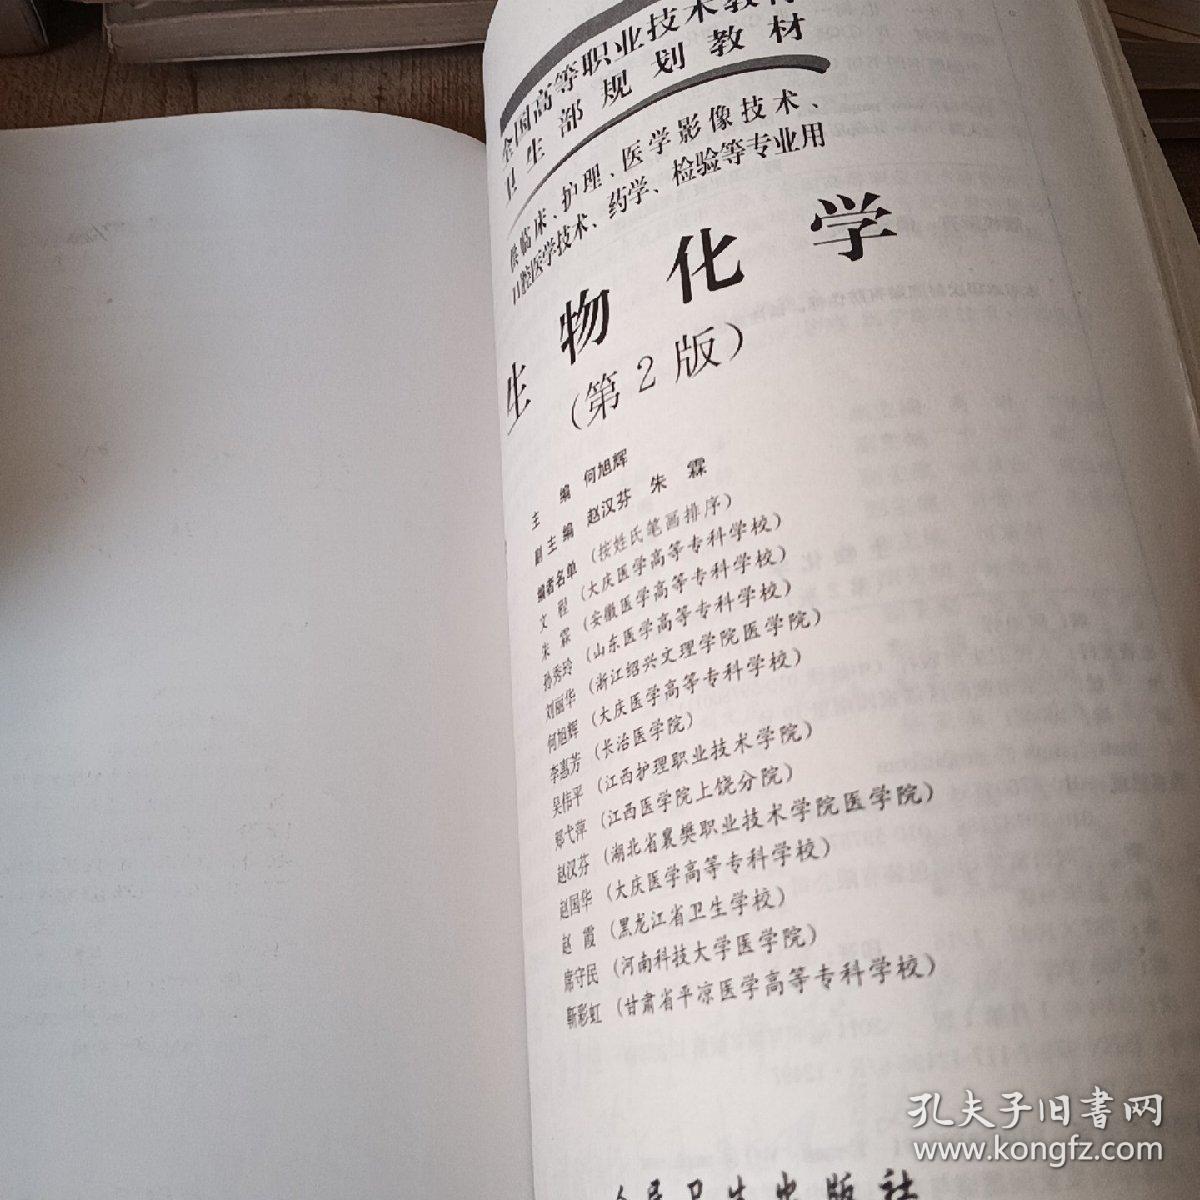 全国高等职业技术教材
卫生部规划教材
供临床、护理、医学影像技术、
口腔医学技术、药学、检验等专业用
生物化学
（第2版）
主 编 何旭辉
副主编 赵汉芬 朱 霖
编者名单（按姓氏笔画排序）
文 程（大庆医学高等专科学校）
朱 霖（安徽医学高等专科学校）
孙秀玲（山东医学高等专科学校）
刘丽华（浙江绍兴文理学院医学院）
何旭辉（大庆医学高等专科学校）
李惠芳（长治医学院）
吴伟平（江西护理职业技术学院）
郑弋萍（江西医学院上饶分院）
赵汉芬（湖北省襄樊职业技术学院医学院）
赵国华（大庆医学高等专科学校）
赵 霞（黑龙江省卫生学校）
席守民（河南科技大学医学院）
靳彩虹（甘肃省平凉医学高等专科学校）
人民卫生出版社
孔夫子旧书网
www.kongfz.com